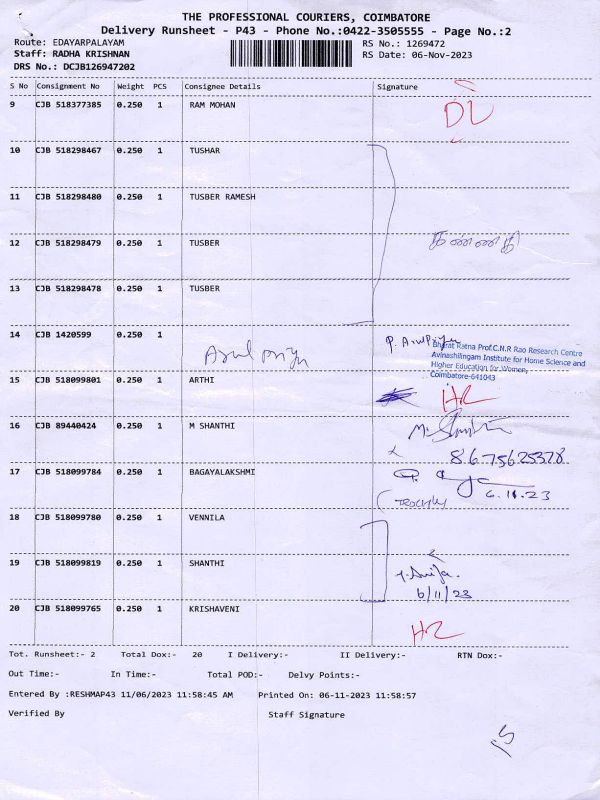 THE PROFESSIONAL COURIERS, COIMBATORE
Delivery Runsheet - P43 - Phone No.:0422-3505555 - Page No.:2
Route: EDAYARPALAYAM
RS No.: 1269472
Staff: RADHA KRISHNAN
RS Date: 06-Nov-2023
DRS No.: DCJB126947202
S No Consignment No Weight PCS Consignee Details Signature
9 CJB 518377385 0.250 1 RAM MOHAN DL
10 CJB 518298467 0.250 1 TUSHAR
11 CJB 518298480 0.250 1 TUSBER RAMESH
12 CJB 518298479 0.250 1 TUSBER
13 CJB 518298478 0.250 1 TUSBER
14 CJB 1420599 0.250 1
Arul priya P. Arul Priya
Bharat Ratna Prof.C.N.R Rao Research Centre
Avinashilingam Institute for Home Science and
Higher Education for Women,
Coimbatore-641043
15 CJB 518099801 0.250 1 ARTHI HL
16 CJB 89440424 0.250 1 M SHANTHI M. Shanthi
8675625378
17 CJB 518099784 0.250 1 BAGAYALAKSHMI
6.11.23
18 CJB 518099780 0.250 1 VENNILA
19 CJB 518099819 0.250 1 SHANTHI
6/11/23
20 CJB 518099765 0.250 1 KRISHAVENI HL
Tot. Runsheet:- 2 Total Dox:- 20 I Delivery:- II Delivery:- RTN Dox:-
Out Time:- In Time:- Total POD:- Delvy Points:-
Entered By :RESHMAP43 11/06/2023 11:58:45 AM Printed On: 06-11-2023 11:58:57
Verified By Staff Signature